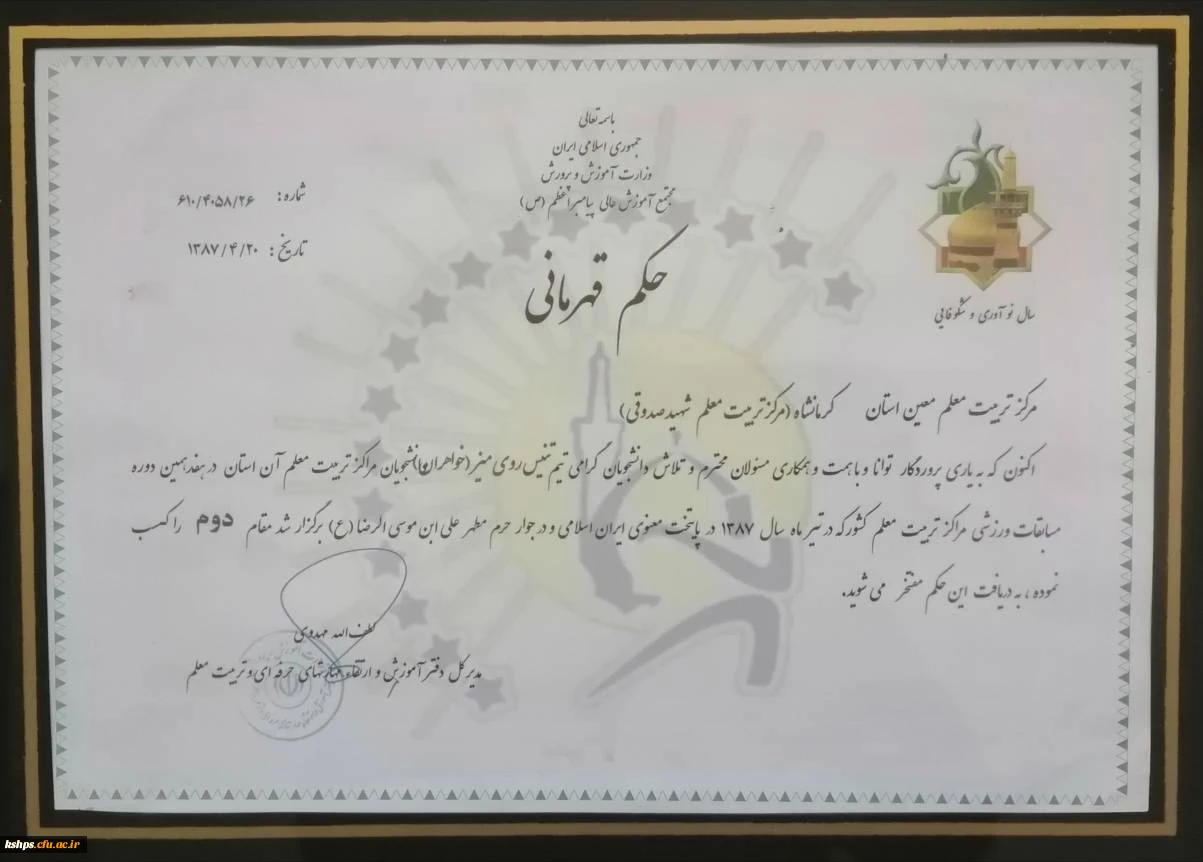 باسمه تعالی
جمهوری اسلامی ایران
وزارت آموزش و پرورش
مجتمع آموزش عالی پیامبر اعظم (ص)
شماره: ۶۱۰/۴۰۵۸/۲۶
تاریخ: ۱۳۸۷/۴/۲۰
سال نوآوری و شکوفایی
حکم قهرمانی
مرکز تربیت معلم معین استان کرمانشاه (مرکز تربیت معلم شهید صدوقی)
اکنون که به یاری پروردگار توانا و با همت و همکاری مسئولان محترم و تلاش دانشجویان گرامی تیم تنیس روی میز (خواهران) دانشجویان مراکز تربیت معلم آن استان در هفدهمین دوره
مسابقات ورزشی مراکز تربیت معلم کشور که در تیر ماه سال ۱۳۸۷ در پایتخت معنوی ایران اسلامی و در جوار حرم مطهر علی ابن موسی الرضا (ع) برگزار شد مقام دوم را کسب
نموده، به دریافت این حکم مفتخر می شوید.
لطف الله مهدوی
مدیر کل دفتر آموزش و ارتقاء مهارتهای حرفه ای و تربیت معلم
kshps.cfu.ac.ir